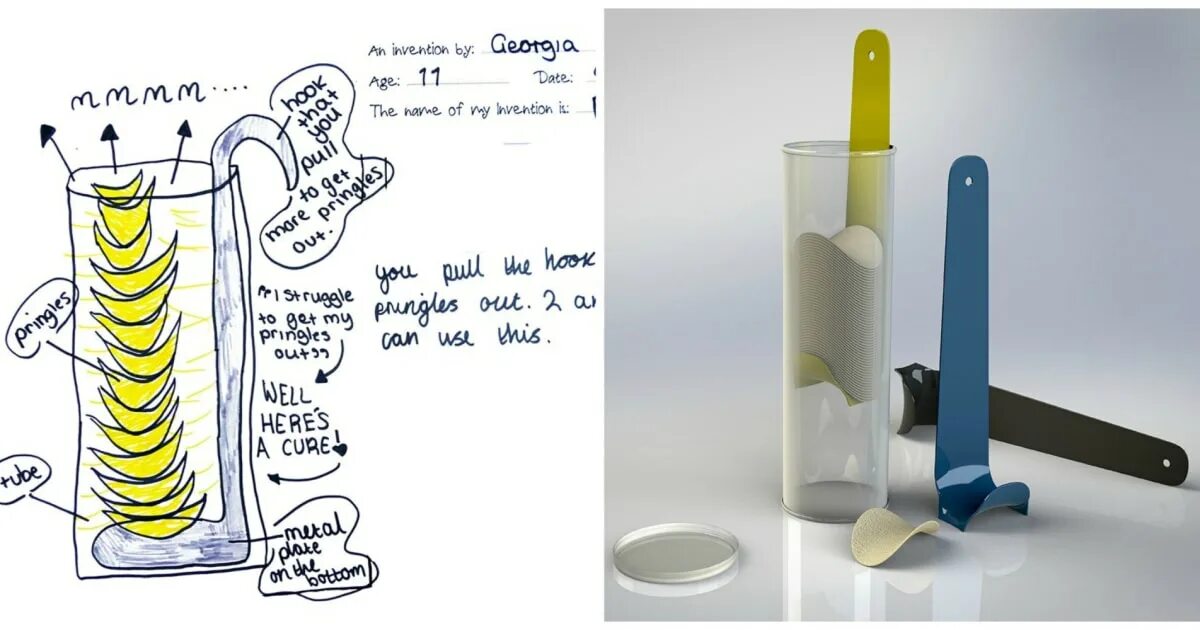 An invention by: Georgia
Age: 11 Date:
The name of my Invention is:
mmmm....
hook
that
you
pull
to get
more pringles
out.
pringles
"I struggle
to get my
pringles
out"
WELL
HERE'S
A CURE!
you pull the hook
pringles out. 2 a
can use this.
tube
metal
plate
on the
bottom